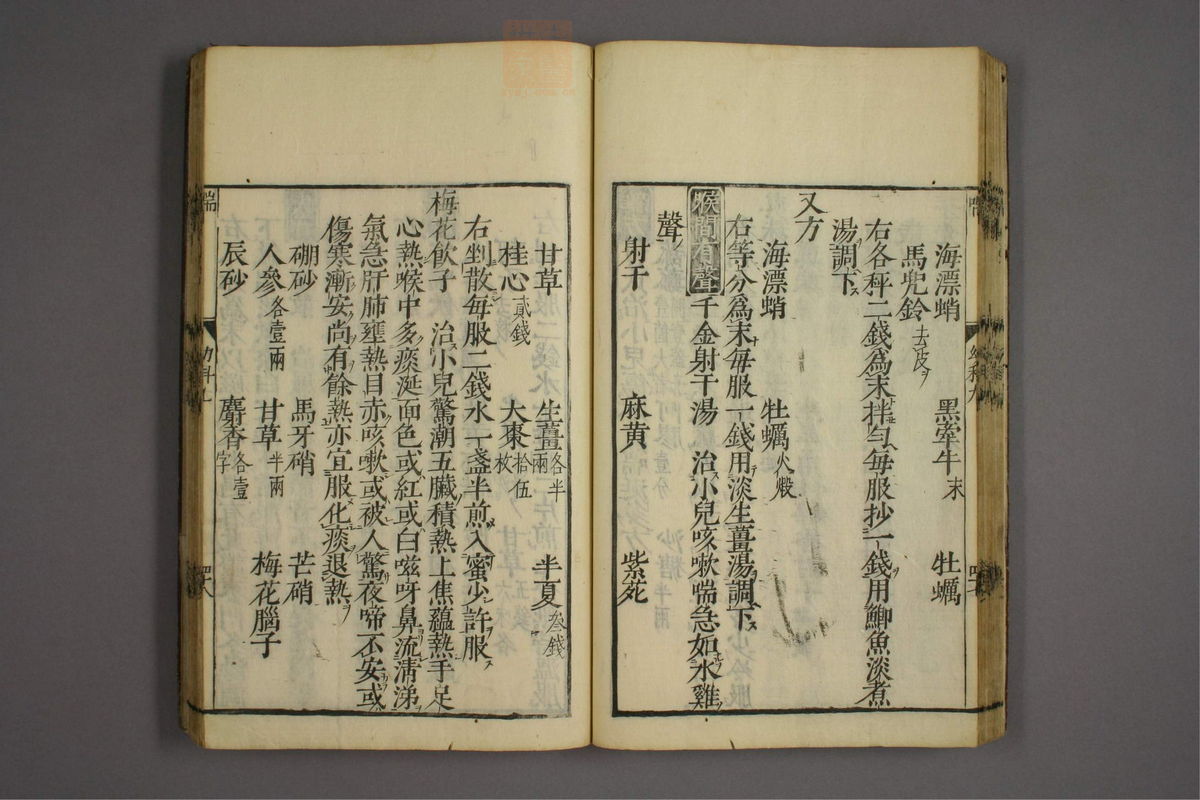 海漂蛸　黑牽牛末　牡蠣
馬兜鈴去皮
右各秤二錢爲末拌勻每服抄一錢用鯽魚淡煮
湯調下
又方
海漂蛸　牡蠣火煅
右等分爲末每服一錢用淡生薑湯調下
喉間有聲　千金射干湯　治小兒咳嗽喘急如水雞
聲
射干　麻黄　紫菀
甘草　生薑各半兩　半夏叁錢
桂心貳錢　大棗拾伍枚
右剉散每服二錢水一盞半煎入蜜少許服
梅花飲子　治小兒驚潮五臟積熱上焦蘊熱手足
心熱喉中多痰涎面色或紅或白嗞呀鼻流清涕
氣急肝肺壅熱目赤咳嗽或被人驚夜啼不安或
傷寒漸安尚有餘熱亦宜服化痰退熱
硼砂　馬牙硝　芒硝
人參各壹兩　甘草半兩　梅花腦子
辰砂　麝香各壹字
喘　幼科九